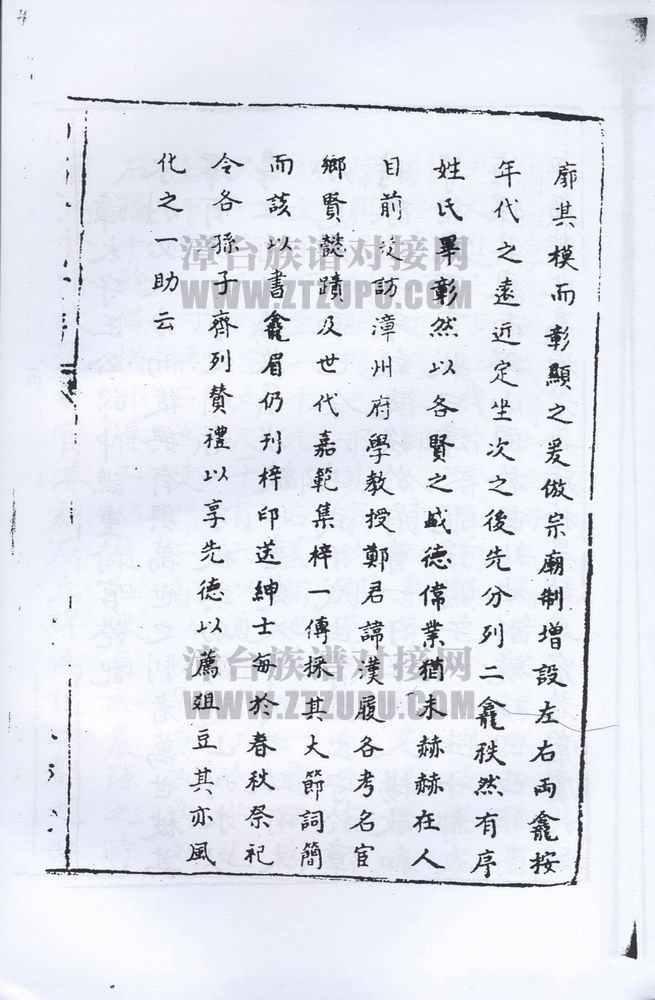 廓其模而彰顯之爰倣宗廟制增設左右両龕按
年代之遠近定坐次之後先分列二龕秩然有序
姓氏畢彰然以各賢之盛德偉業猶未赫赫在人
目前爰訪漳州府學教授鄭君諱漢履各考名官
鄉賢懿蹟及世代嘉範集梓一傳採其大節詞簡
而該以書龕眉仍刊梓印送紳士每於春秋祭祀
令各孫子齊列贊禮以享先德以薦俎豆其亦風
化之一助云
漳台族谱对接网
WWW.ZTZUPU.COM
漳台族谱对接网
WWW.ZTZUPU.COM